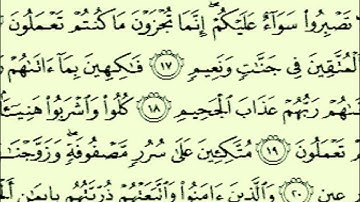 تَصْبِرُوا۟ سَوَآءٌ عَلَيْكُمْ ۖ إِنَّمَا تُجْزَوْنَ مَا كُنتُمْ تَعْمَلُونَ
ٱلْمُتَّقِينَ فِى جَنَّٰتٍ وَنَعِيمٍ ١٧ فَٰكِهِينَ بِمَآ ءَاتَىٰهُمْ
رَبُّهُمْ عَذَابَ ٱلْجَحِيمِ ١٨ كُلُوا۟ وَٱشْرَبُوا۟ هَنِيٓـًٔا
تَعْمَلُونَ ١٩ مُتَّكِـِٔينَ عَلَىٰ سُرُرٍ مَّصْفُوفَةٍ ۖ وَزَوَّجْنَٰ
عِينٍ ٢٠ وَٱلَّذِينَ ءَامَنُوا۟ وَٱتَّبَعَتْهُمْ ذُرِّيَّتُهُم بِإِيمَٰنٍ